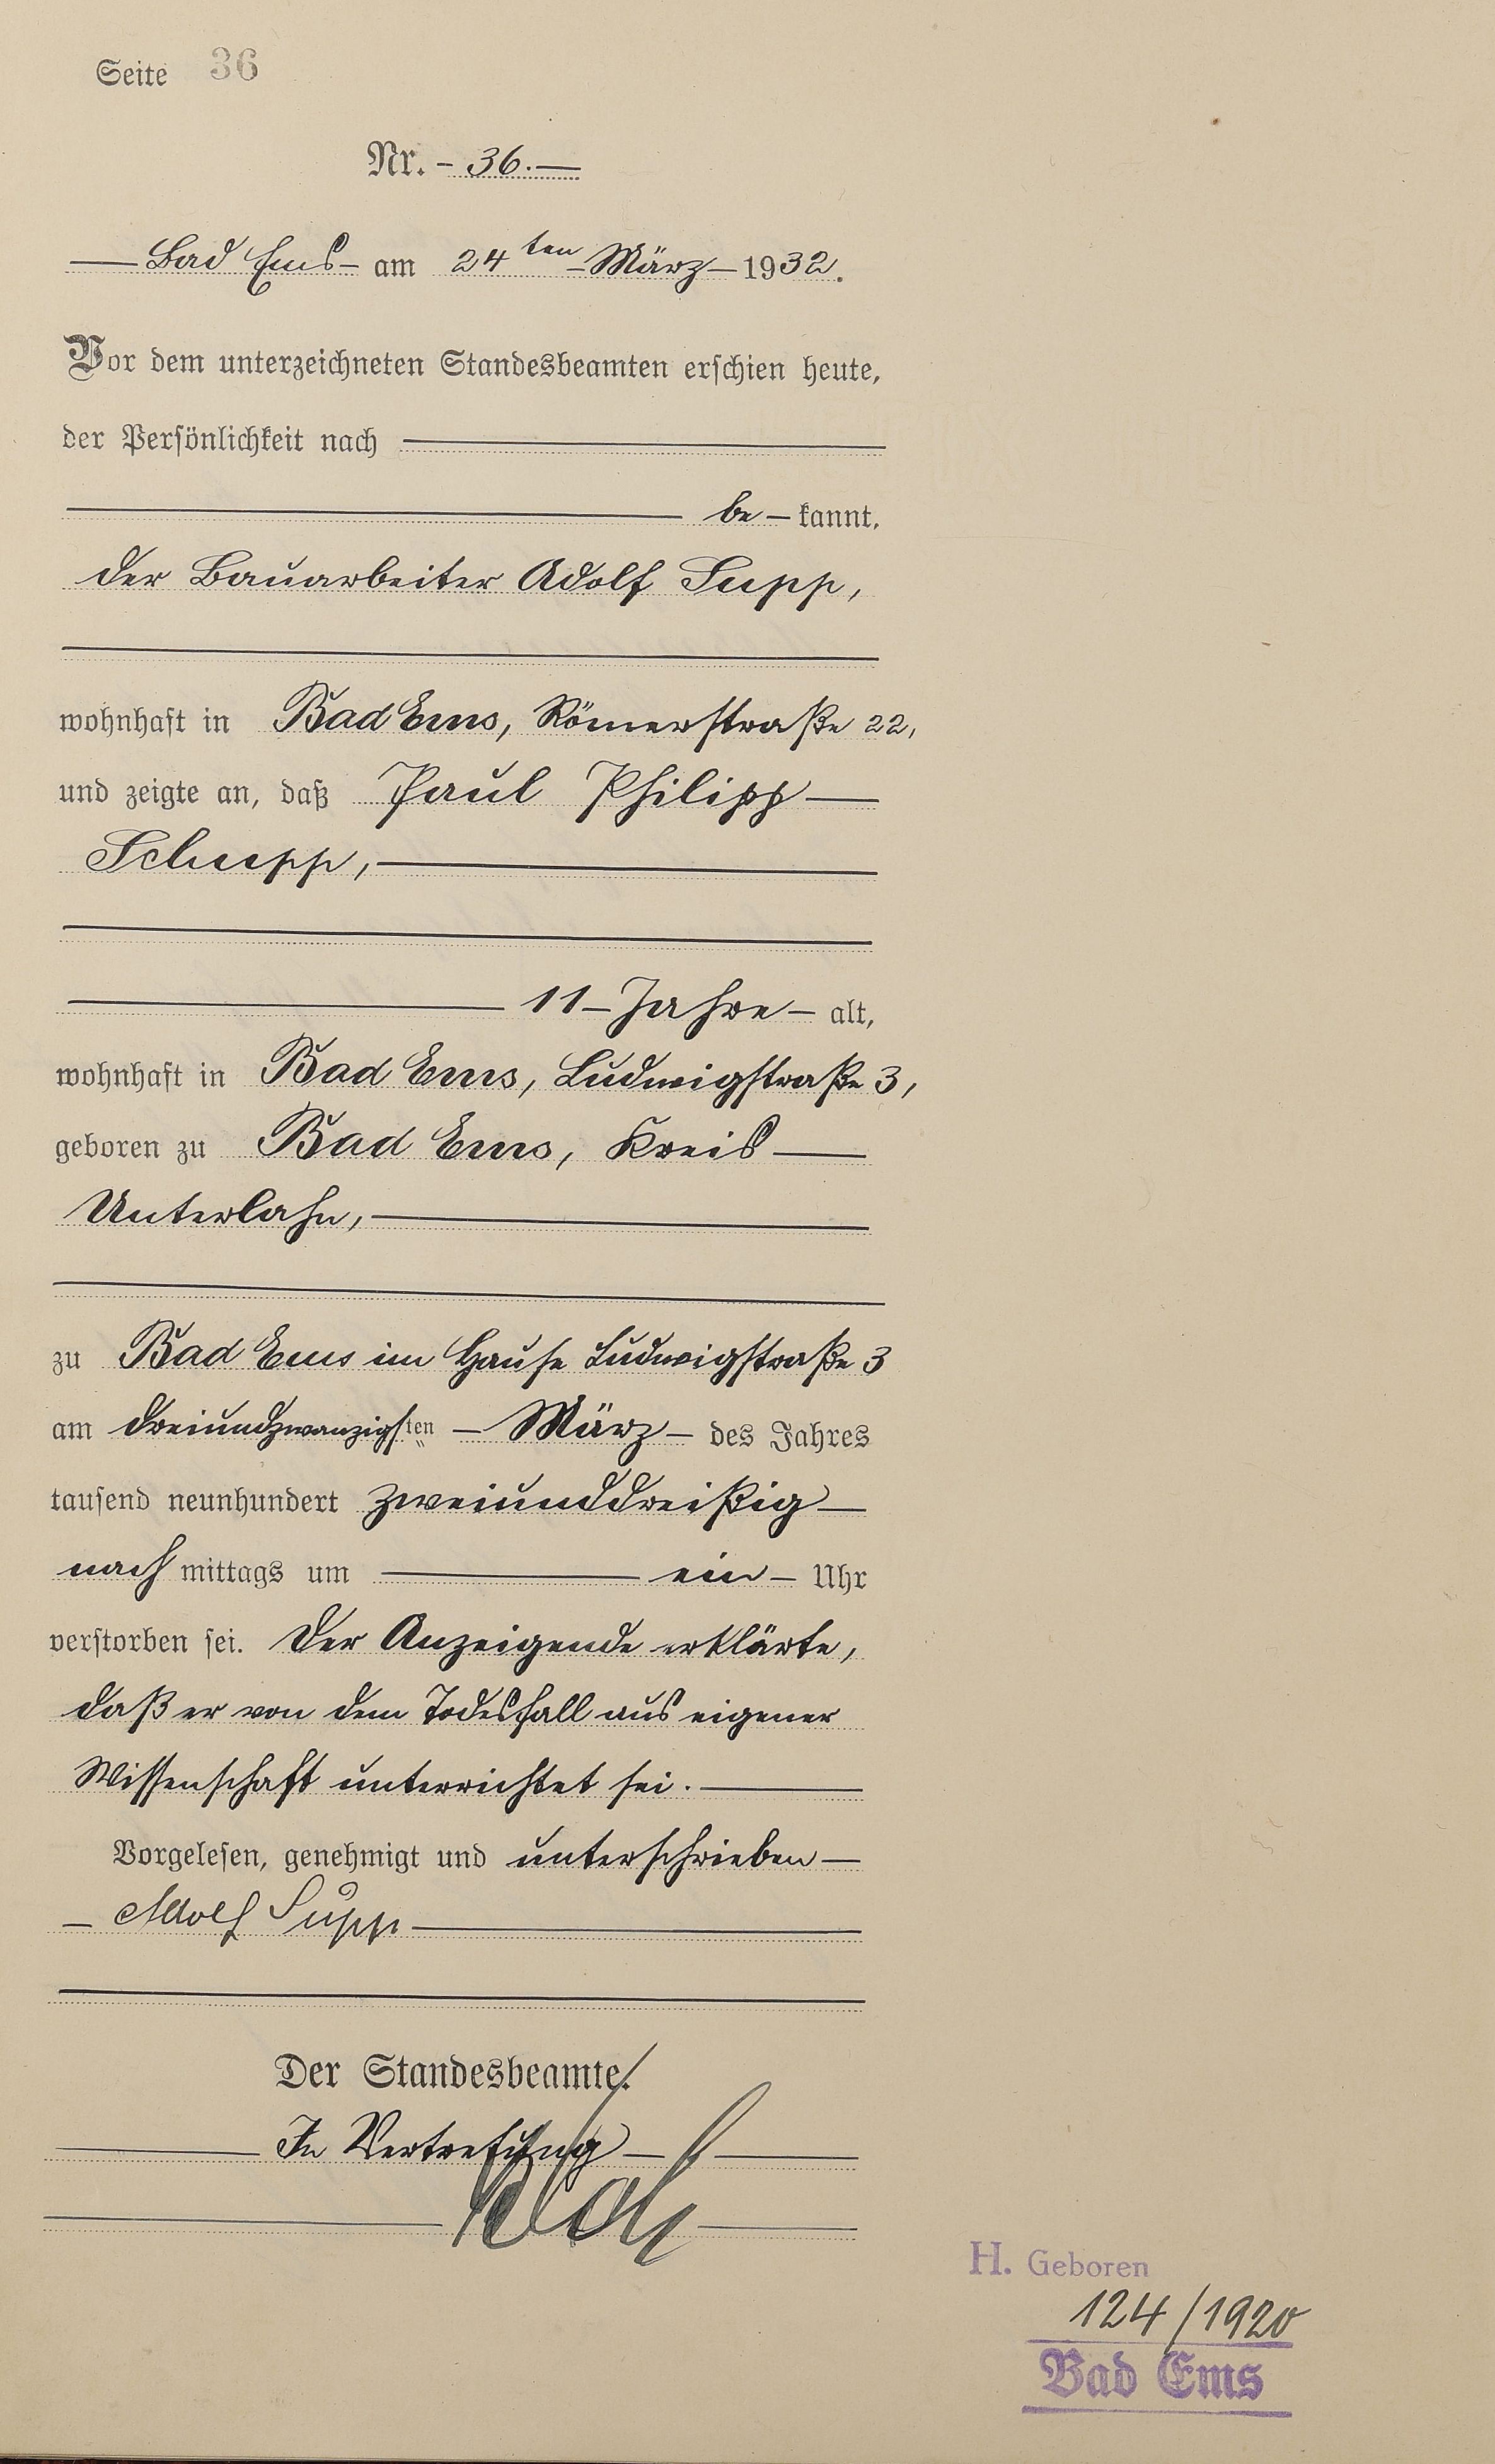 Seite 36
Nr. - 36. —
— Bad Ems - am 24ten - März - 1932.
Vor dem unterzeichneten Standesbeamten erschien heute,
der Persönlichkeit nach
be - kannt,
der Bauarbeiter Adolf Supp,
wohnhaft in Bad Ems, Römerstraße 22,
und zeigte an, daß Paul Philipp —
Schupp, —
11 - Jahre - alt,
wohnhaft in Bad Ems, Ludwigstraße 3,
geboren zu Bad Ems, Kreis —
Unterlahn, —
zu Bad Ems im Hause Ludwigstraße 3
am dreiundzwanzigsten - März - des Jahres
tausend neunhundert zweiunddreißig —
nach mittags um — ein - Uhr
verstorben sei. Der Anzeigende erklärte,
daß er von dem Todesfall aus eigener
Wissenschaft unterrichtet sei. —
Vorgelesen, genehmigt und unterschrieben —
- Adolf Supp —
Der Standesbeamte.
— In Vertretung —
H. Geboren
124/1920
Bad Ems